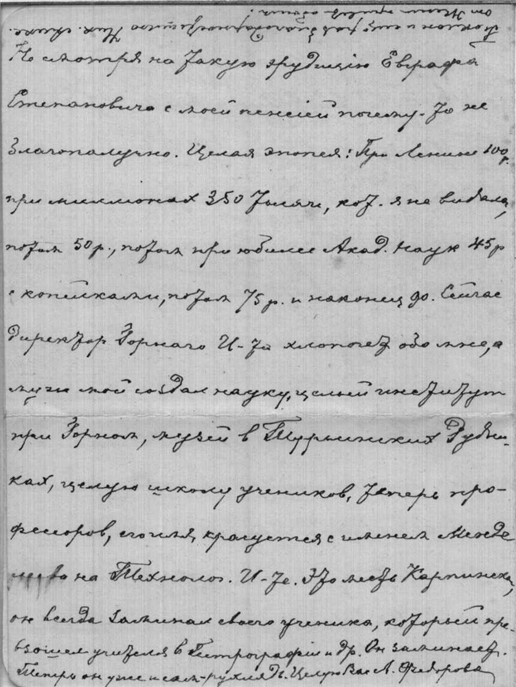 Не смотря на такую эрудицію Евграфа
Степановича с моей пенсіей почему-то не
благополучно. Целая эпопея: При Ленине 100 р.
при миллионах 350 тысяч, кот. я не видала,
потом 50 р., потом при юбилее Акад. Наук 45 р
с копейками, потом 75 р. и наконец 90. Сейчас
директор Горнаго И-та хлопочет обо мне, а
муж мой создал науку, целый институт
при Горном, музей в Турьинских Рудни-
ках, целую школу учеников, теперь про-
фессоров, его имя красуется с именем Менде
на Технолог. И-те. Это месть Карпинска,
он всегда заминал своего ученика, который пре-
взошел учителя в Петрографіи и др. Он заминает.
Теперь он уже и сам Целую Вас А. Федорова
Поклон и ещё раз благодарю
от Жени привет